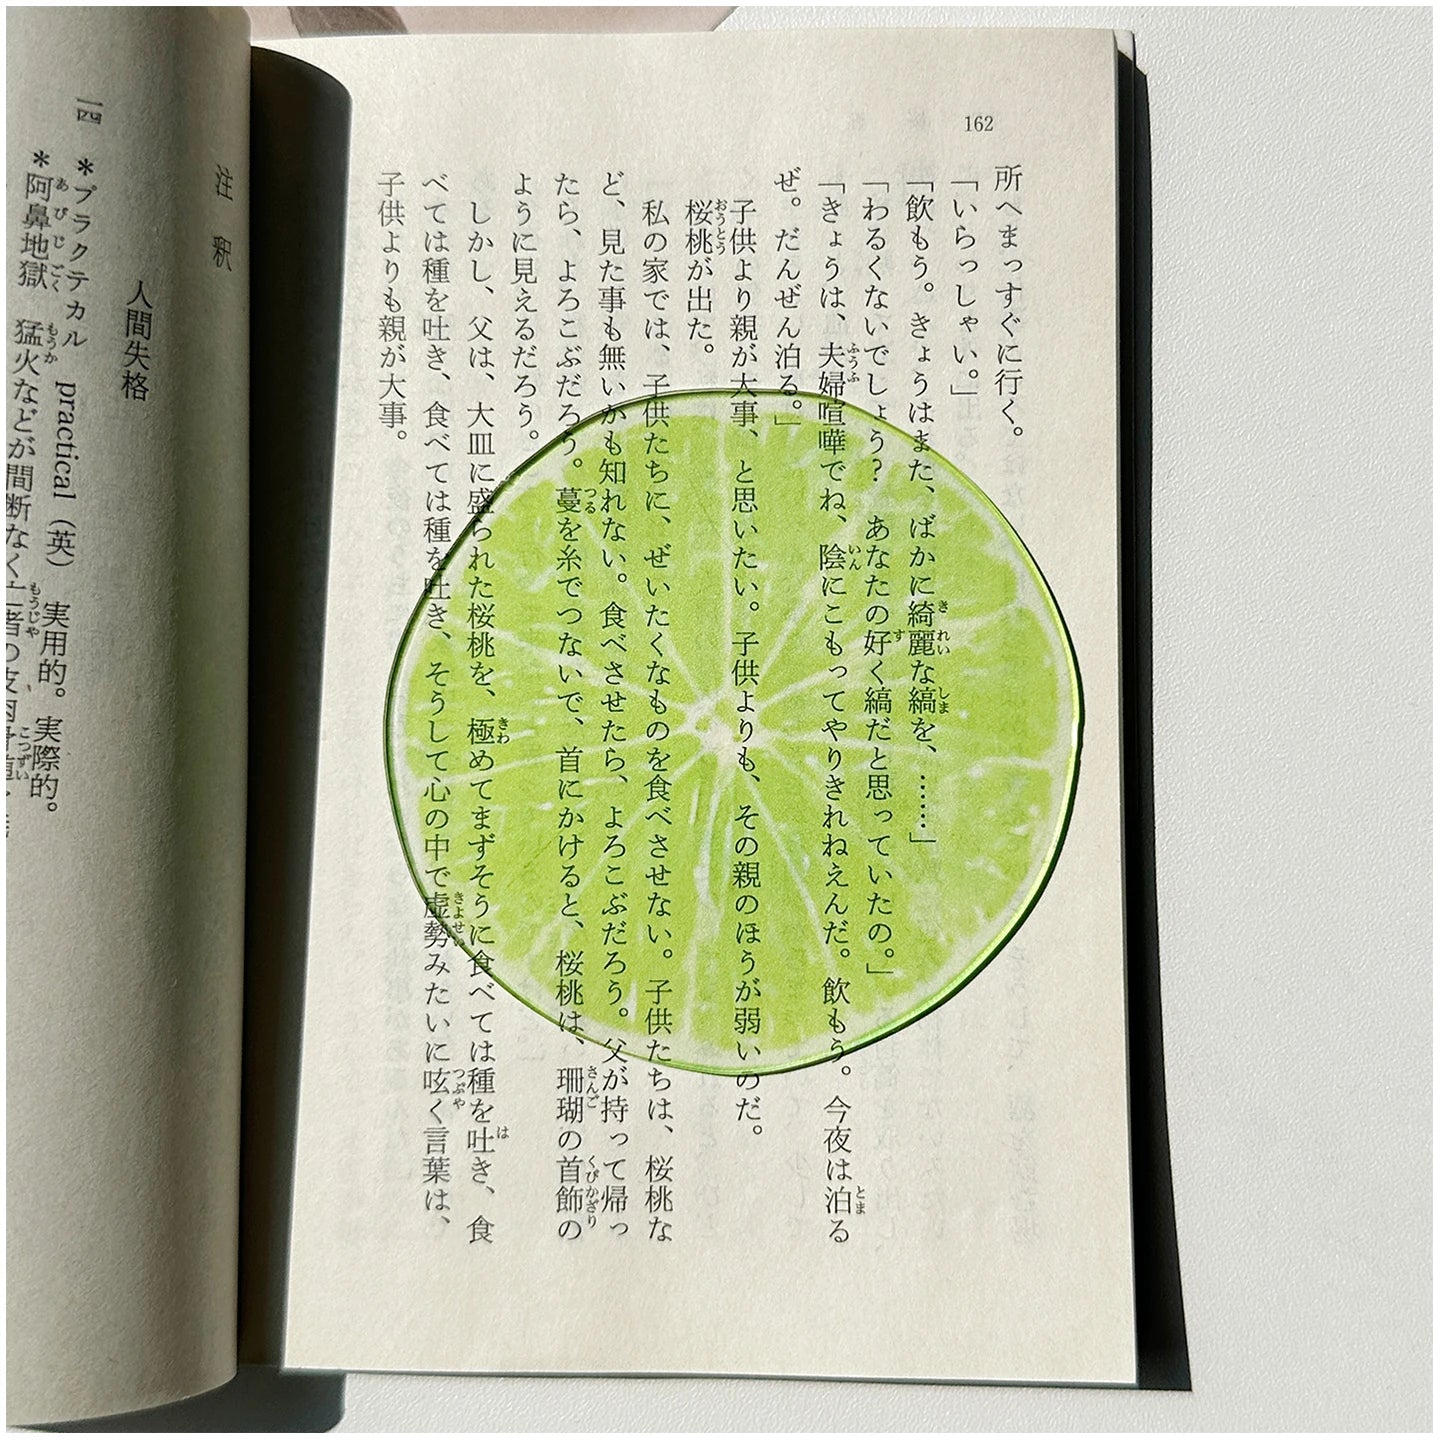 162
所へまっすぐに行く。
「いらっしゃい。」
「飲もう。きょうはまた、ばかに綺麗な縞を、……」
「わるくないでしょう？　あなたの好く縞だと思っていたの。」
「きょうは、夫婦喧嘩でね、陰にこもってやりきれねえんだ。飲もう。今夜は泊る
ぜ。だんぜん泊る。」
子供より親が大事、と思いたい。子供よりも、その親のほうが弱いのだ。
桜桃が出た。
私の家では、子供たちに、ぜいたくなものを食べさせない。子供たちは、桜桃な
ど、見た事も無いかも知れない。食べさせたら、よろこぶだろう。父が持って帰っ
たら、よろこぶだろう。蔓を糸でつないで、首にかけると、桜桃は、珊瑚の首飾の
ように見えるだろう。
しかし、父は、大皿に盛られた桜桃を、極めてまずそうに食べては種を吐き、食
べては種を吐き、食べては種を吐き、そうして心の中で虚勢みたいに呟く言葉は、
子供よりも親が大事。
注釈
人間失格
一四　＊プラクテカル　practical（英）　実用的。実際的。
＊阿鼻地獄　猛火などが間断なく亡者の